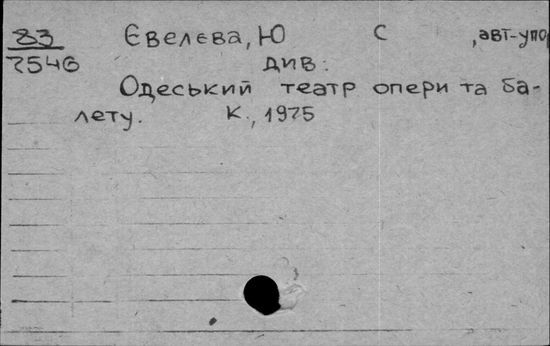 83 Євелєва, Ю С , авт-упо
7546 див:
Одеський театр опери та ба-
лету. К., 1975